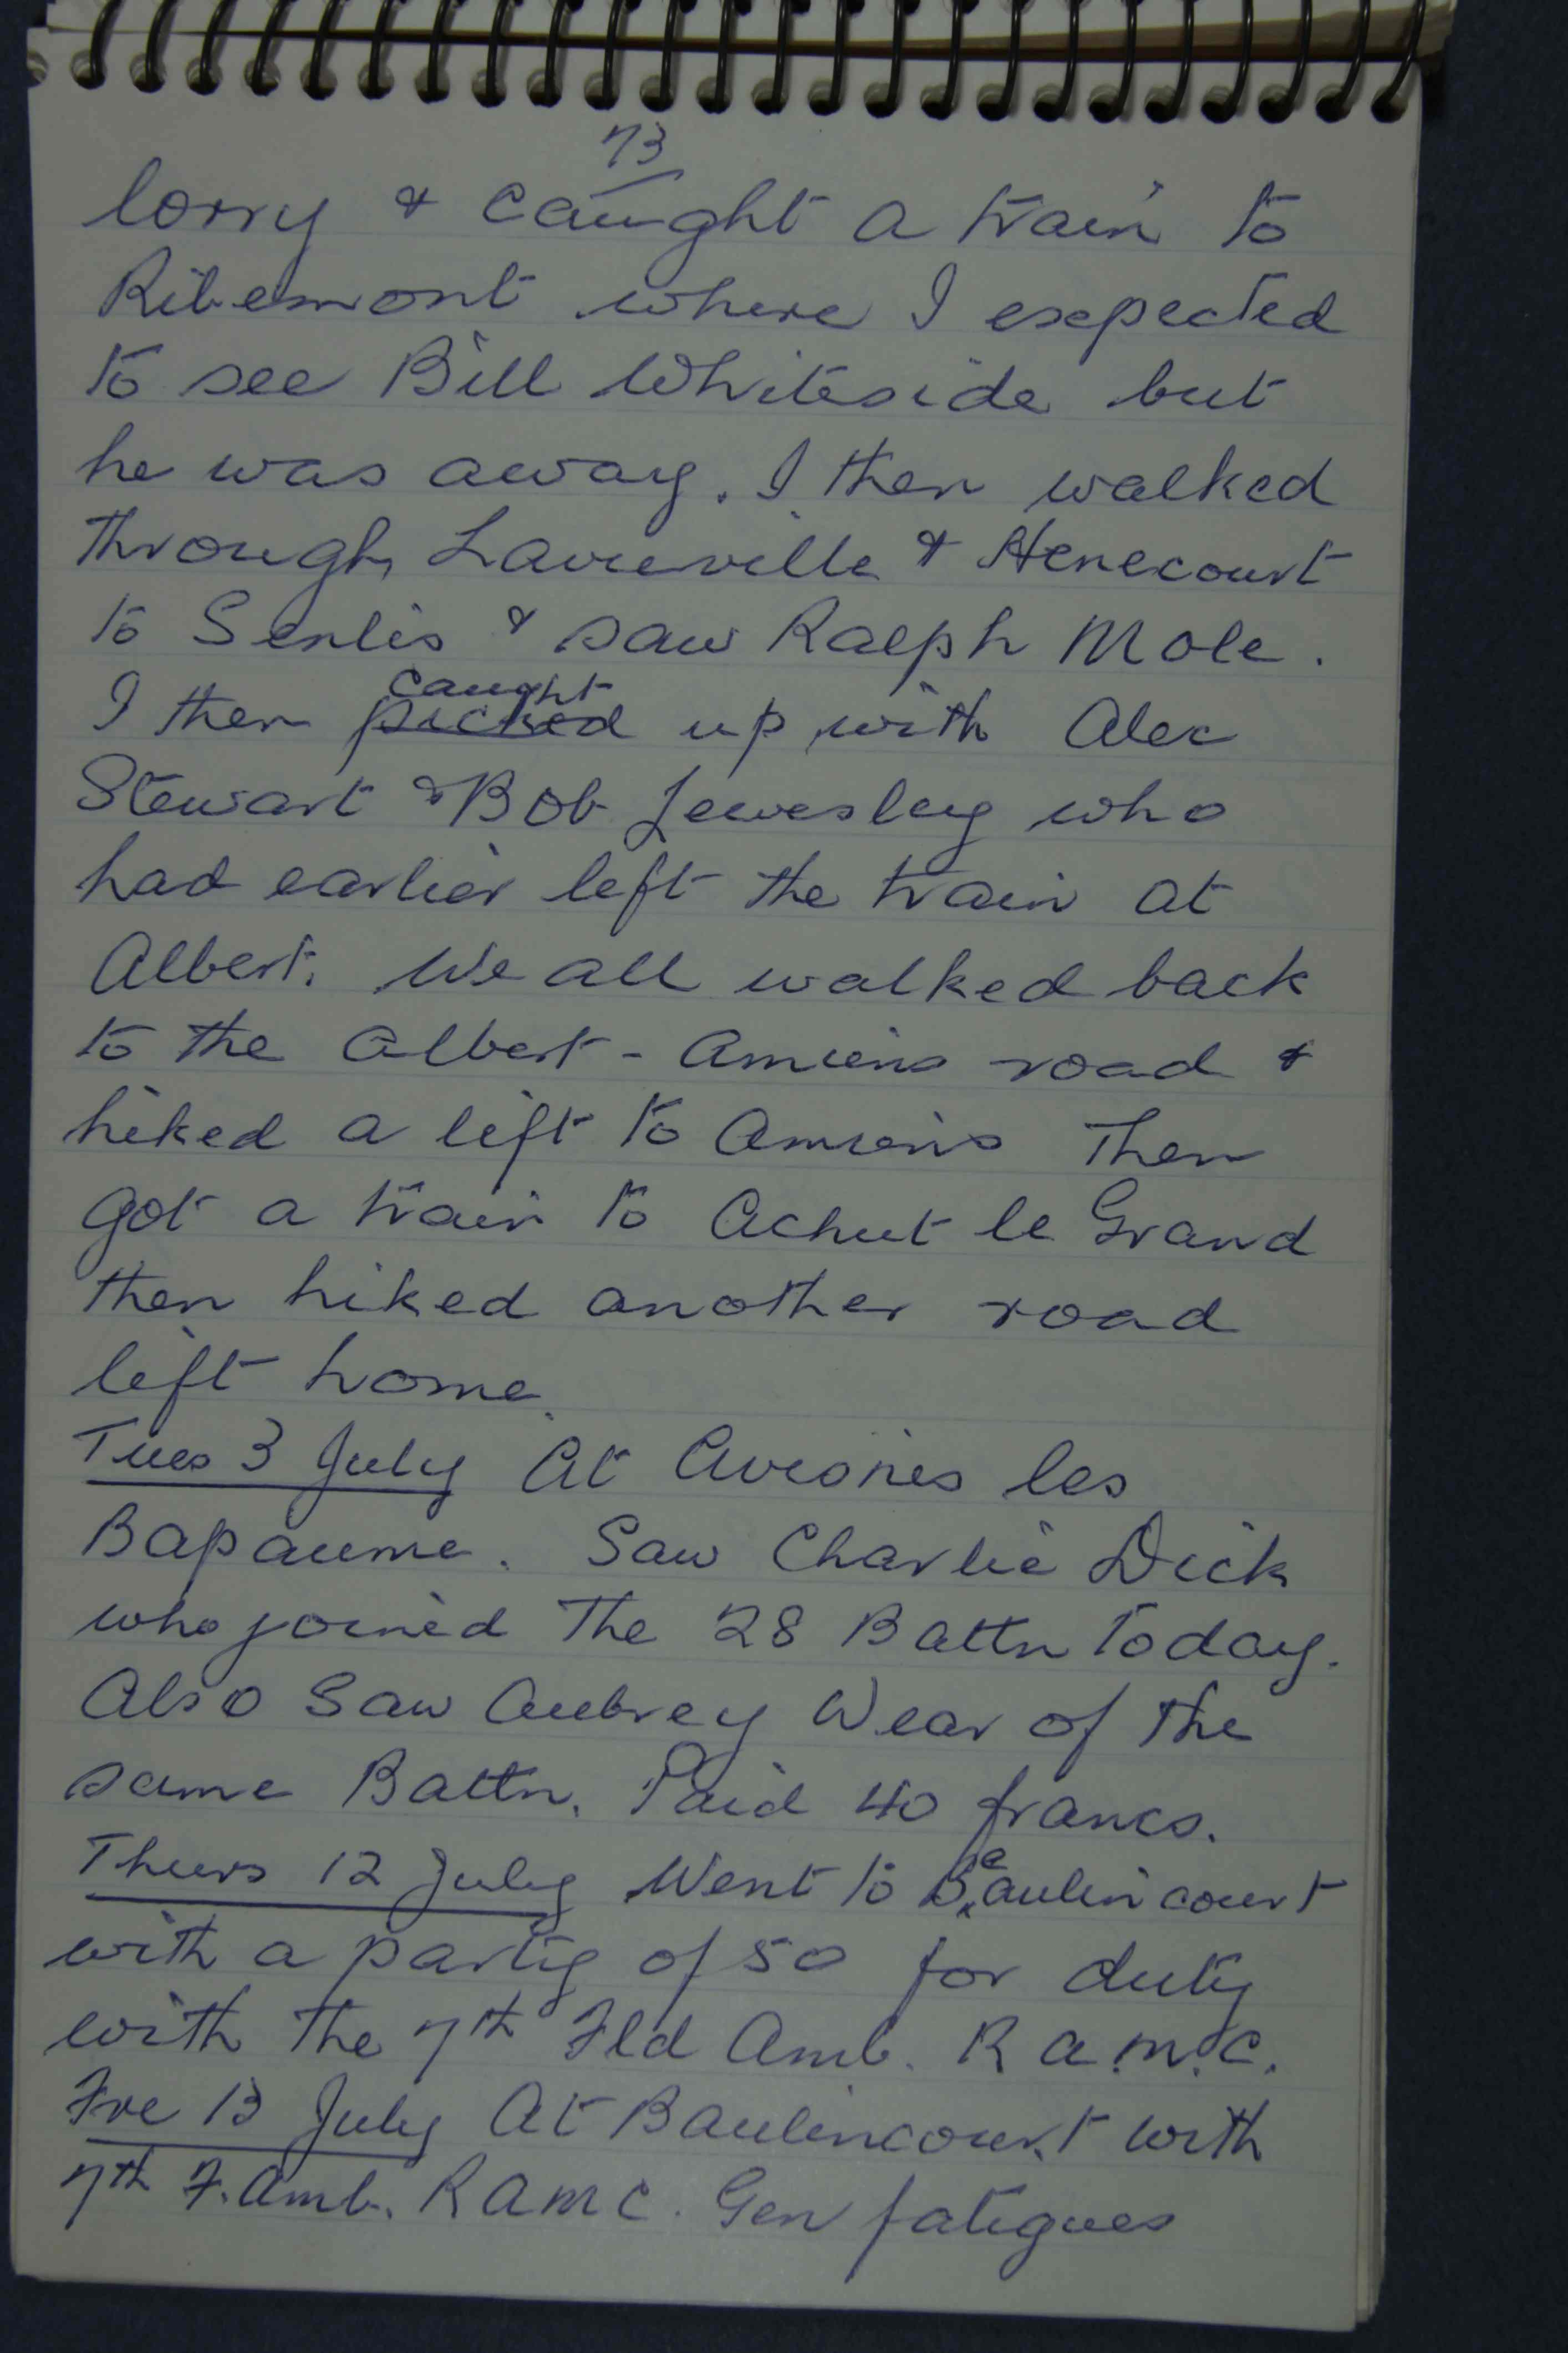 73
lorry & caught a train to
Ribemont where I expected
to see Bill Whiteside but
he was away. I then walked
through Lavieville & Henecourt
to Senlis & saw Ralph Mole.
caught
I then picked up with Alec
Stewart & Bob Jewesley who
had earlier left the train at
Albert. We all walked back
to the Albert - Amiens road &
hiked a lift to Amiens then
got a train to Achut le Grand
then hiked another road
lift home.
Tues 3 July At Avesnes les
Bapaume. Saw Charlie Dick
who joined the 28 Battn today.
Also saw Aubrey Wear of the
same Battn. Paid 40 francs.
Thurs 12 July Went to Beaulincourt
with a party of 50 for duty
with the 7th Fld Amb. R.A.M.C.
Fri 13 July At Baulincourt with
7th F. Amb. RAMC. Gen fatigues